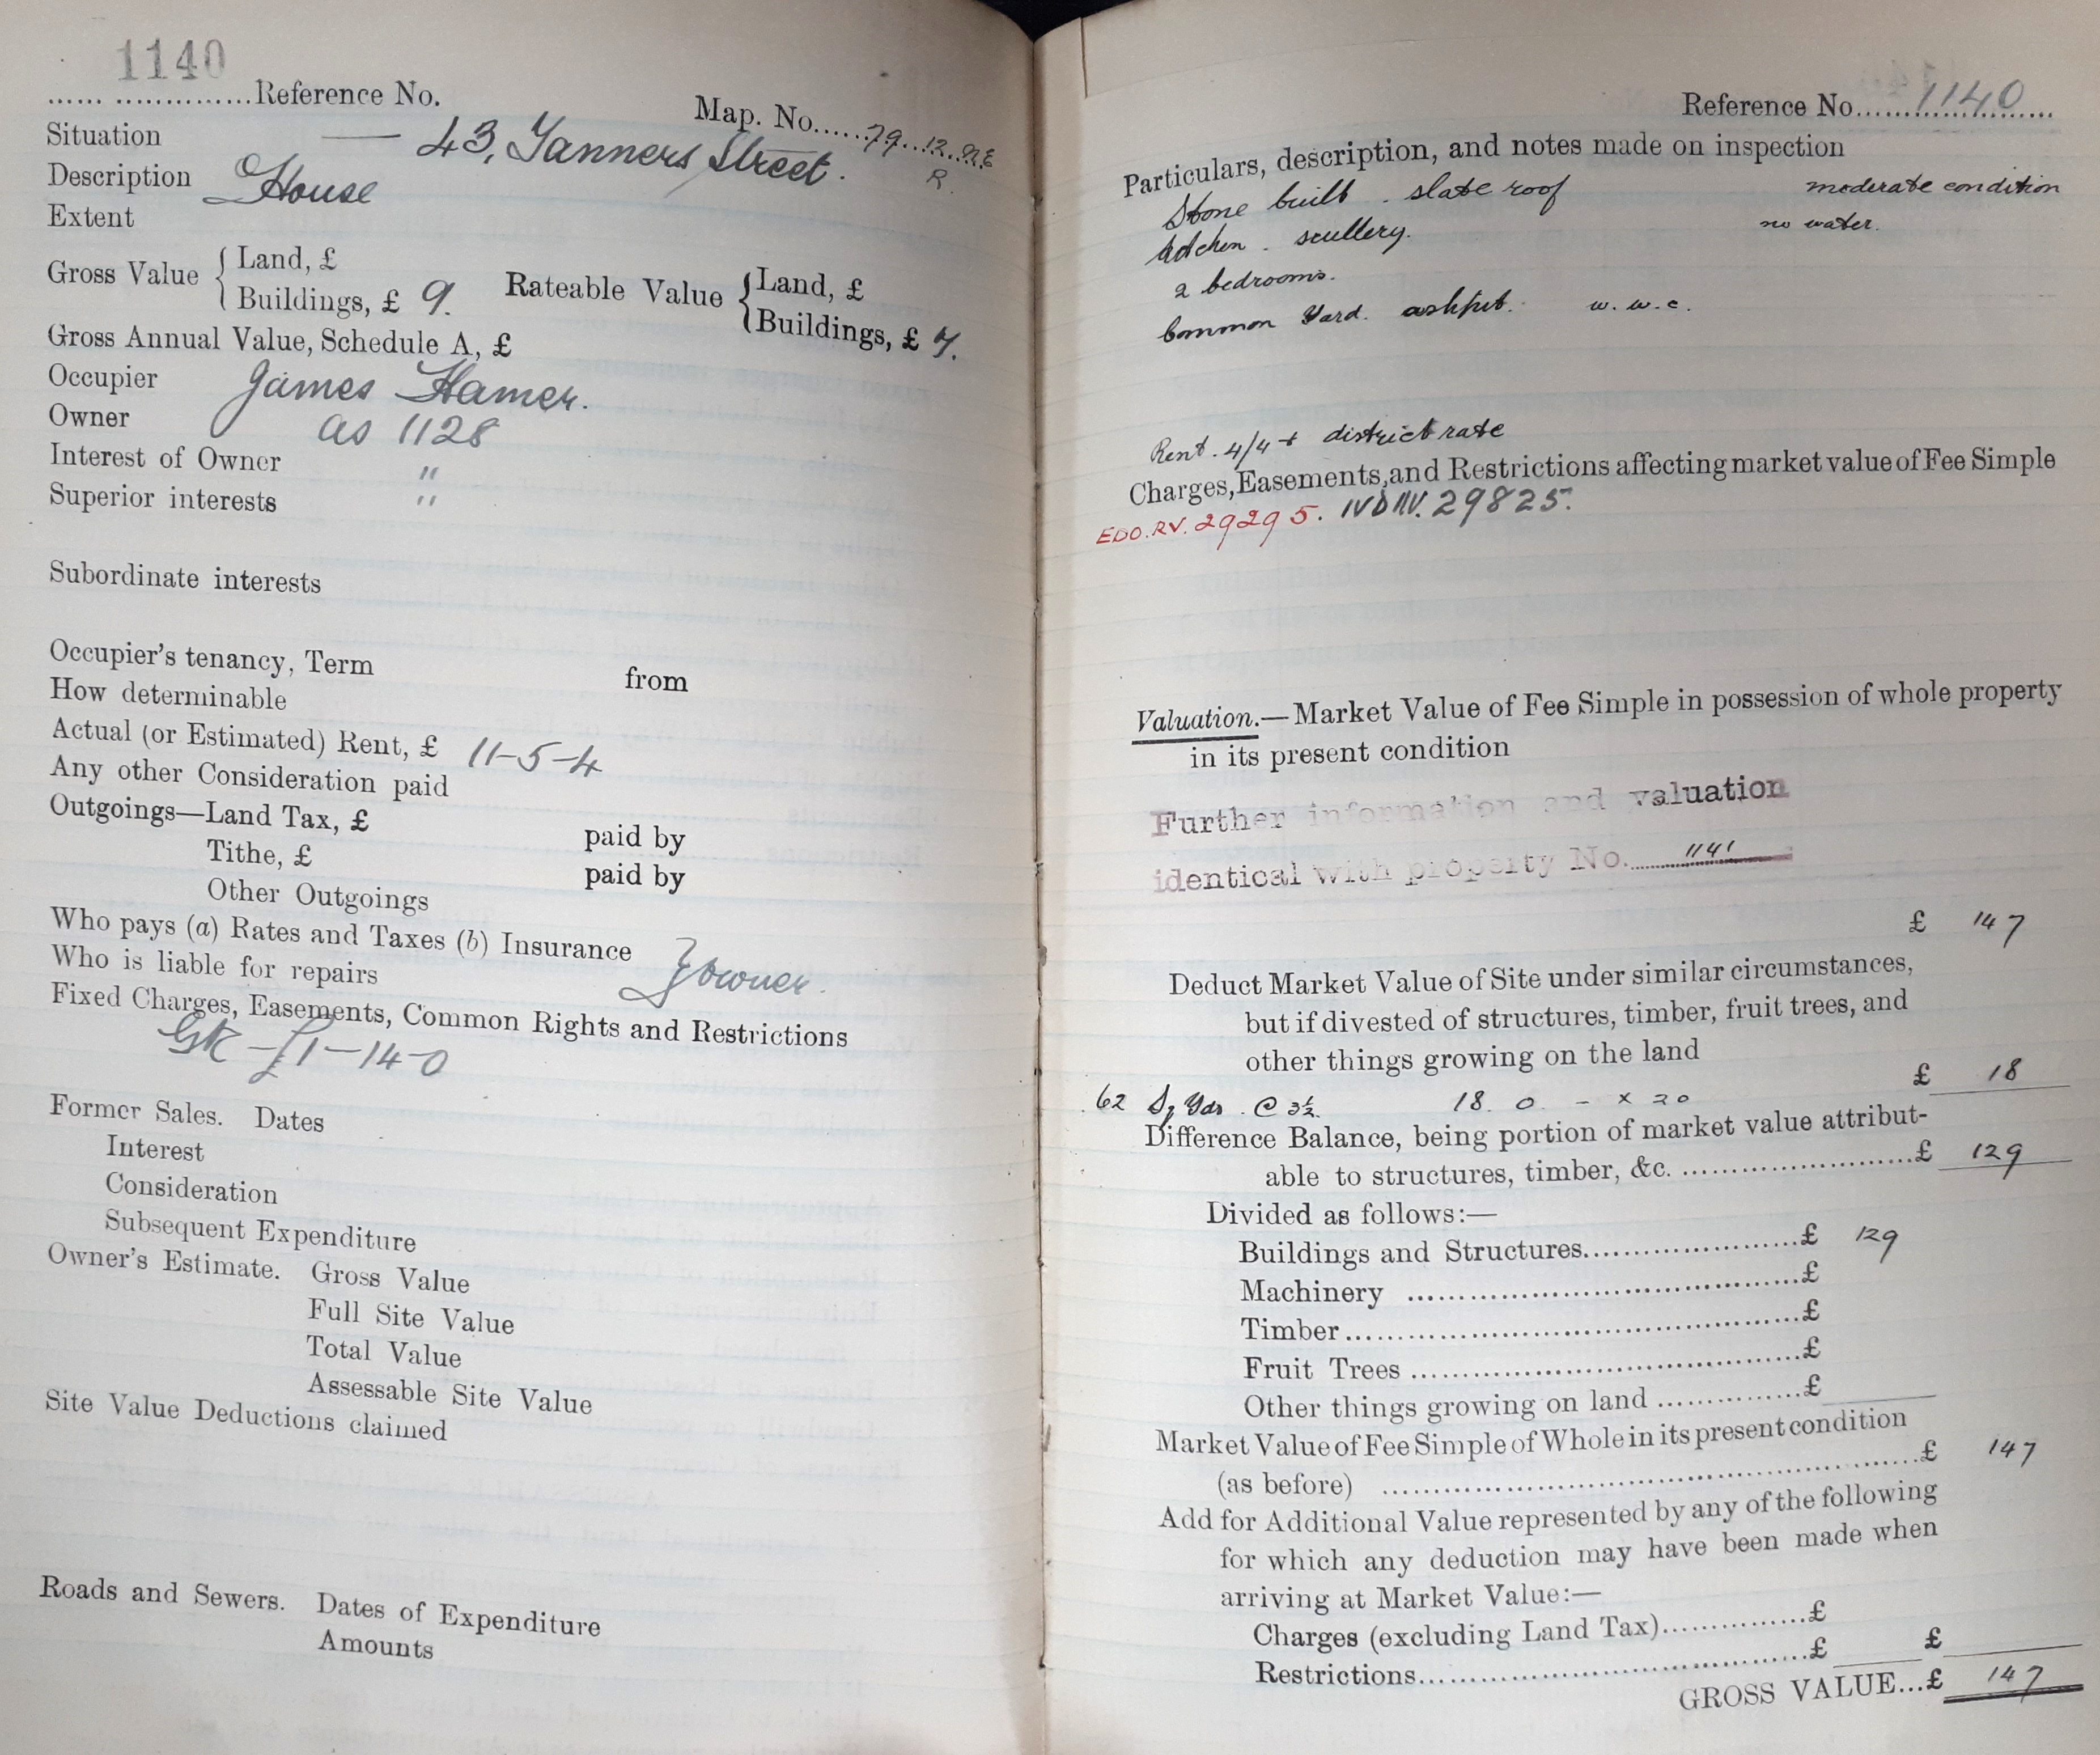 1140
Reference No.
Map. No. 79. 12. N.E
R.
Situation — 43, Tanners Street.
Description House
Extent
Gross Value { Land, £
Buildings, £ 9.
Rateable Value { Land, £
Buildings, £ 7.
Gross Annual Value, Schedule A, £
Occupier James Hamer.
Owner as 1128
Interest of Owner "
Superior interests "
Subordinate interests
Occupier's tenancy, Term from
How determinable
Actual (or Estimated) Rent, £ 11-5-4
Any other Consideration paid
Outgoings—Land Tax, £ paid by
Tithe, £ paid by
Other Outgoings
Who pays (a) Rates and Taxes (b) Insurance } owner.
Who is liable for repairs
Fixed Charges, Easements, Common Rights and Restrictions
£1-14-0
Former Sales. Dates
Interest
Consideration
Subsequent Expenditure
Owner's Estimate. Gross Value
Full Site Value
Total Value
Assessable Site Value
Site Value Deductions claimed
Roads and Sewers. Dates of Expenditure
Amounts
Reference No. 1140
Particulars, description, and notes made on inspection
Stone built . slate roof moderate condition
kitchen . scullery. no water.
2 bedrooms.
Common Yard. ashpit. w.w.c.
Rent. 4/4 + district rate
Charges, Easements, and Restrictions affecting market value of Fee Simple
EDO. RV. 29295. IVD RV. 29825.
Valuation.—Market Value of Fee Simple in possession of whole property
in its present condition
Further information and valuation
identical with property No. 1141
£ 147
Deduct Market Value of Site under similar circumstances,
but if divested of structures, timber, fruit trees, and
other things growing on the land
£ 18
62 Sq Yds . @ 3½ 18. 0. - x 20
Difference Balance, being portion of market value attribut-
able to structures, timber, &c. £ 129
Divided as follows:—
Buildings and Structures £ 129
Machinery £
Timber £
Fruit Trees £
Other things growing on land £
Market Value of Fee Simple of Whole in its present condition
(as before) £ 147
Add for Additional Value represented by any of the following
for which any deduction may have been made when
arriving at Market Value:—
Charges (excluding Land Tax) £
Restrictions £ £
GROSS VALUE...£ 147